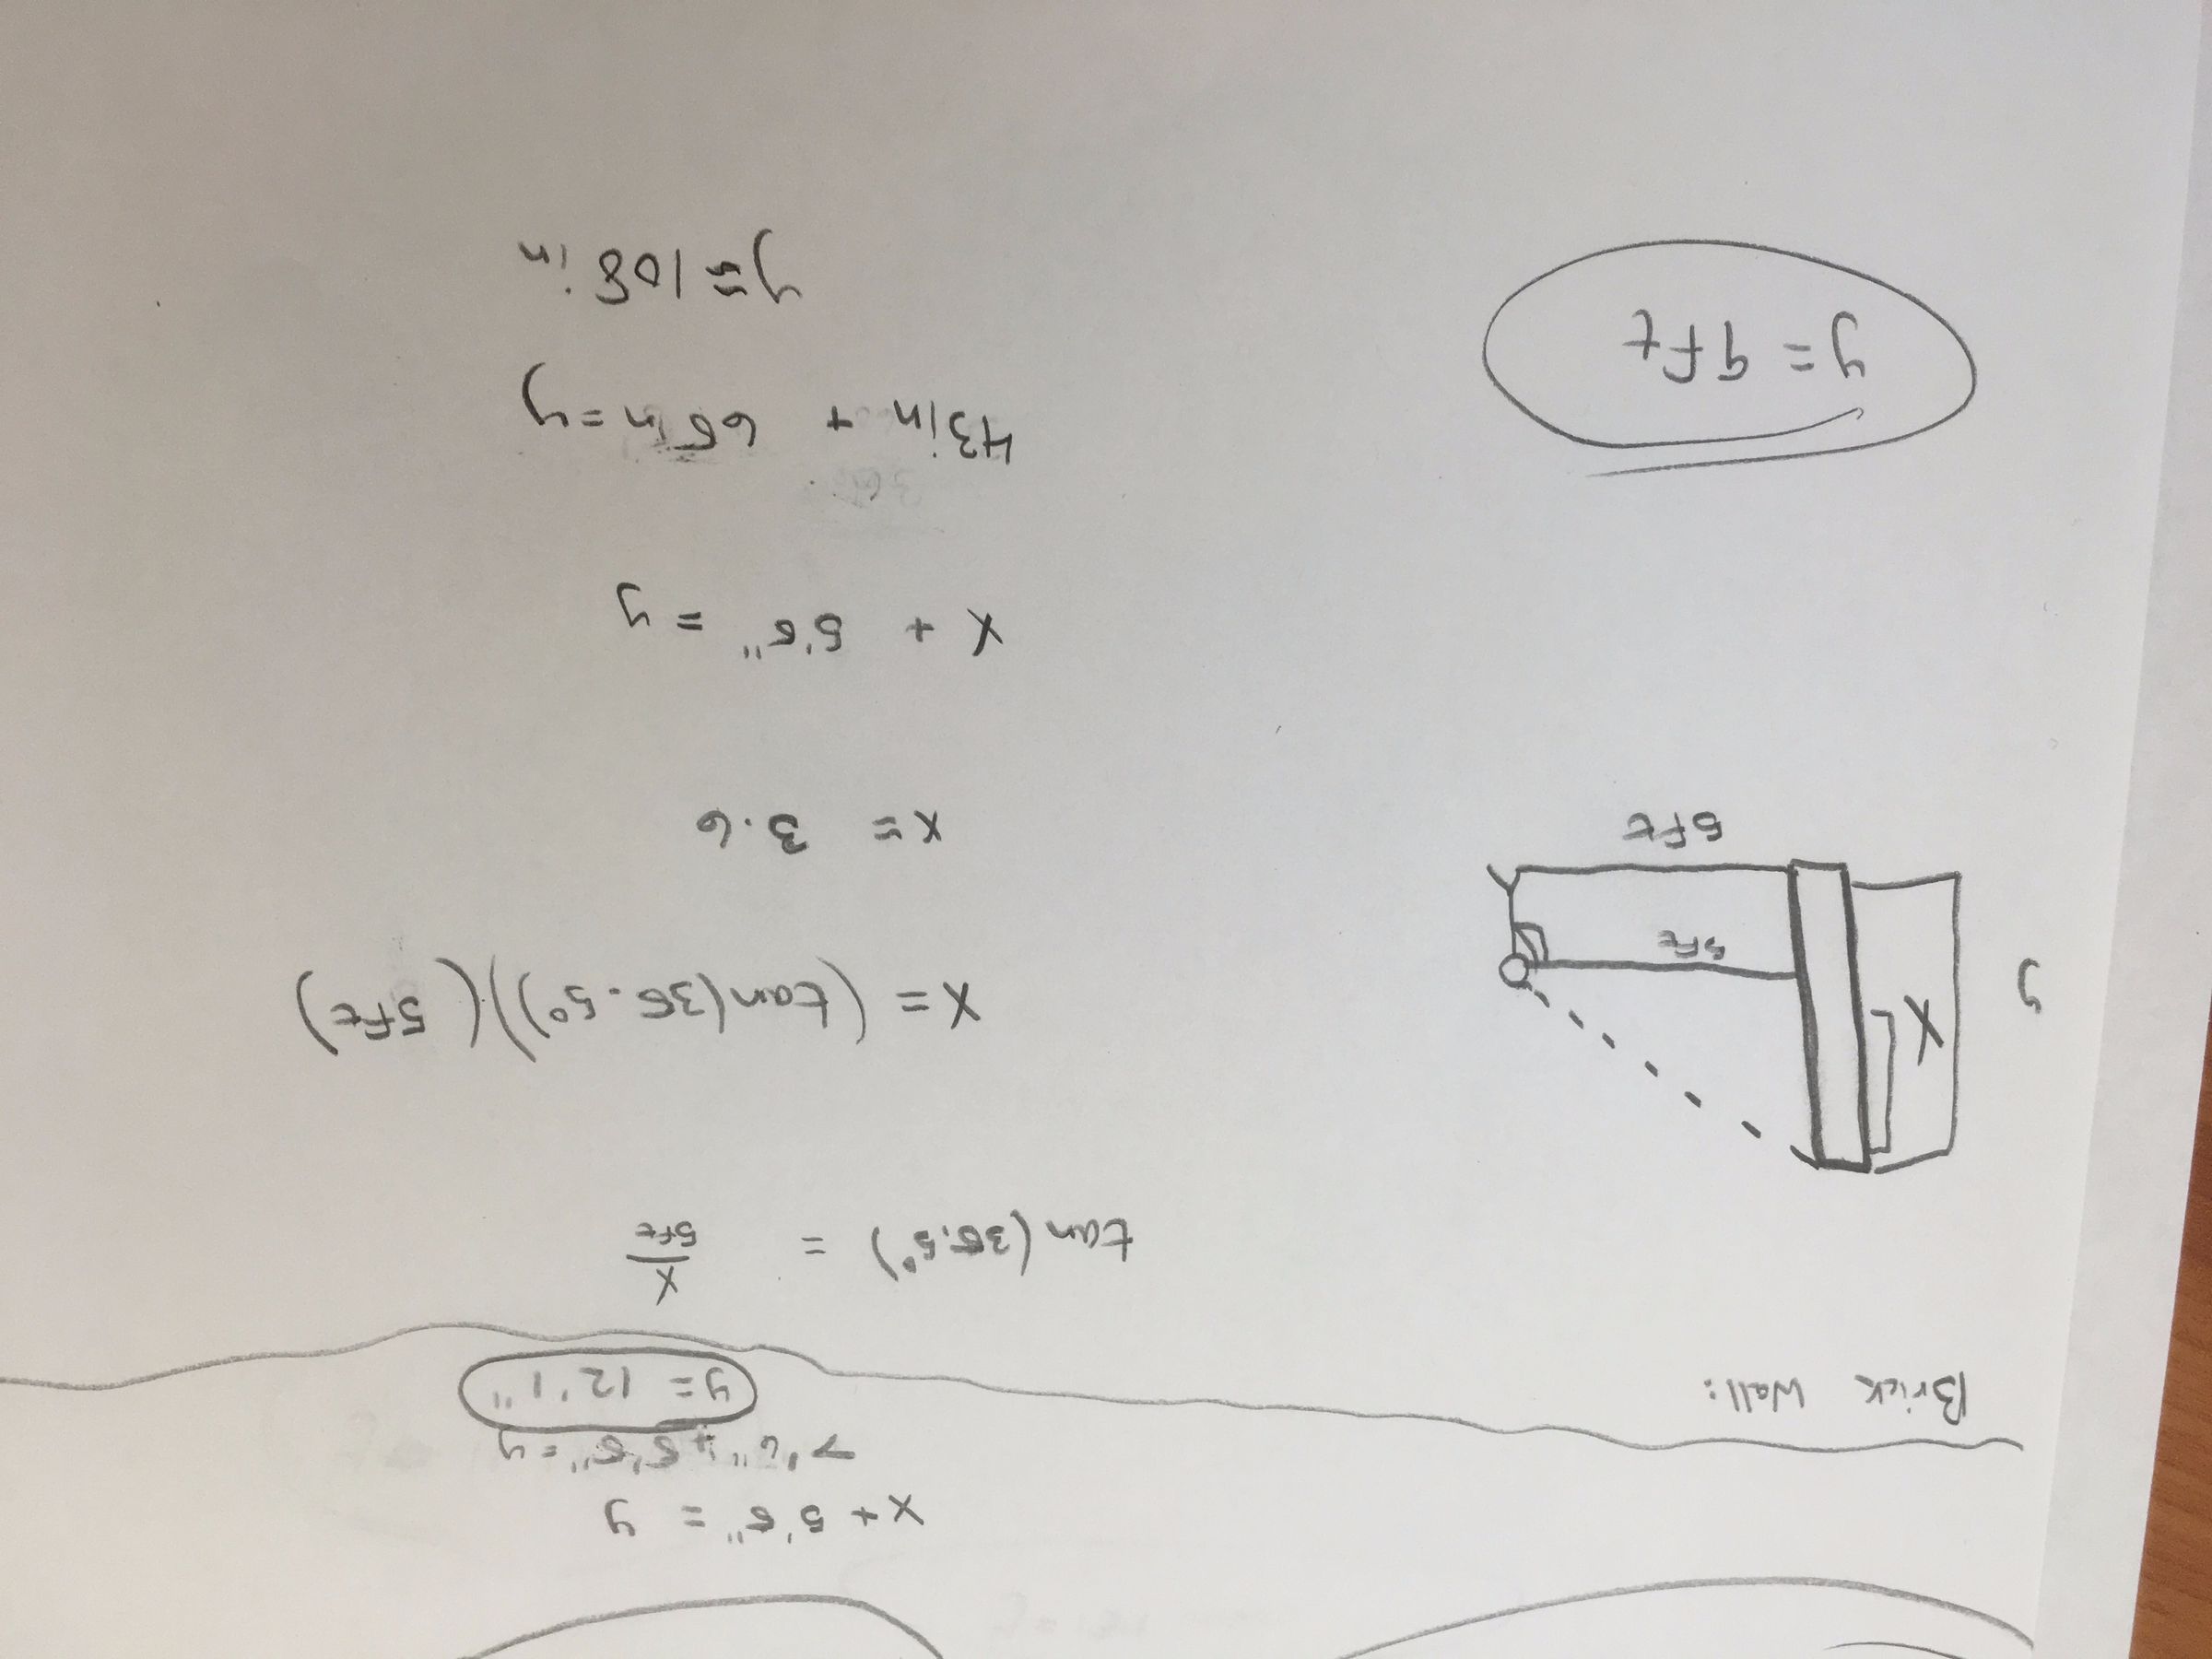 x + 5'5" = y
7'6" + 5'5" = y
y = 12'1"
Brick Wall:
tan(35.5°) = x/5ft
y
X
5ft
5ft
x = (tan(35.5°))(5ft)
x = 3.6
x + 5'5" = y
43in + 65in = y
y = 108 in
y = 9ft